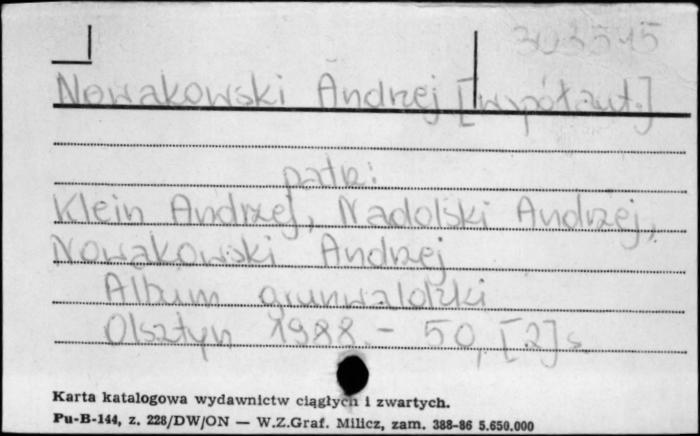 303515
Nowakowski Andrzej [współaut.]
patrz:
Klein Andrzej, Nadolski Andrzej,
Nowakowski Andrzej
Album grunwaldzki
Olsztyn 1988. - 50, [2] s.
Karta katalogowa wydawnictw ciągłych i zwartych.
Pu-B-144, z. 228/DW/ON — W.Z.Graf. Milicz, zam. 388-86 5.650.000